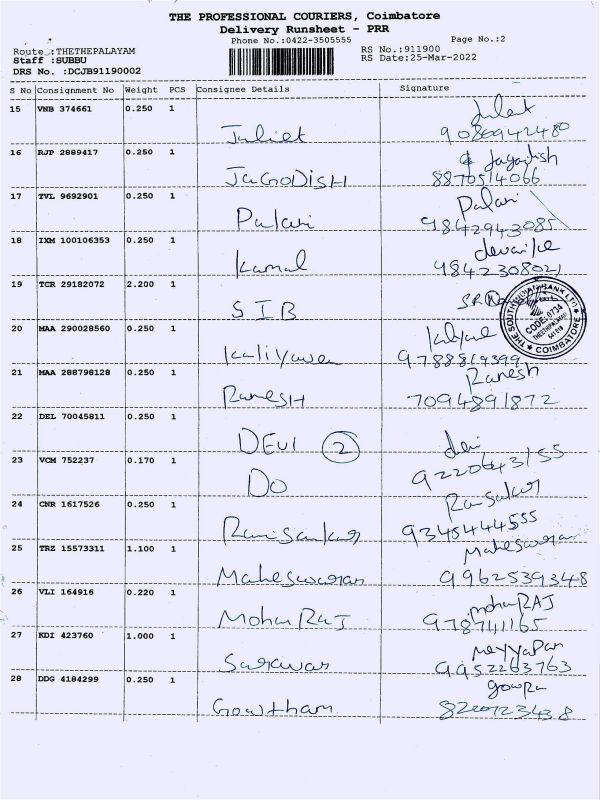 THE PROFESSIONAL COURIERS, Coimbatore
Delivery Runsheet - PRR
Phone No.:0422-3505555
Page No.:2
Route :THETHEPALAYAM
RS No.:911900
Staff :SUBBU
RS Date:25-Mar-2022
DRS No. :DCJB91190002
S No Consignment No Weight PCS Consignee Details Signature
15 VNB 374661 0.250 1 Juliet
9080942480
16 RJP 2889417 0.250 1 JaGODISH Jagadish
8870514066
17 TVL 9692901 0.250 1 Palani Palani
9842943085
18 IXM 100106353 0.250 1 Kamal
9842308021
19 TCR 29182072 2.200 1 SIB
THE SOUTH INDIAN BANK LTD
CODE: 0734
THEETHIPALAYAM
641 010
COIMBATORE
20 MAA 290028560 0.250 1
21 MAA 288798128 0.250 1 RameSH Ramesh
7094891872
22 DEL 70045811 0.250 1 DEVI 2 devi
9220643155
23 VCM 752237 0.170 1 DO
24 CNR 1617526 0.250 1 Ravisankar
9345444555
25 TRZ 15573311 1.100 1 Maheswaran Maheswaran
9962539348
26 VLI 164916 0.220 1 MohanRaJ mohanRAJ
978741165
27 KDI 423760 1.000 1 Saravanan meyyapan
9952263763
28 DDG 4184299 0.250 1 Gowtham